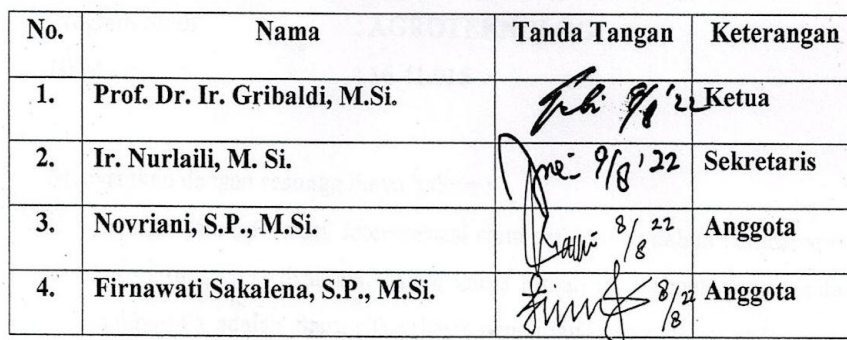 No. Nama Tanda Tangan Keterangan
1. Prof. Dr. Ir. Gribaldi, M.Si. 9/8 '22 Ketua
2. Ir. Nurlaili, M. Si. 9/8 '22 Sekretaris
3. Novriani, S.P., M.Si. 8/8 22 Anggota
4. Firnawati Sakalena, S.P., M.Si. 8/8 22 Anggota